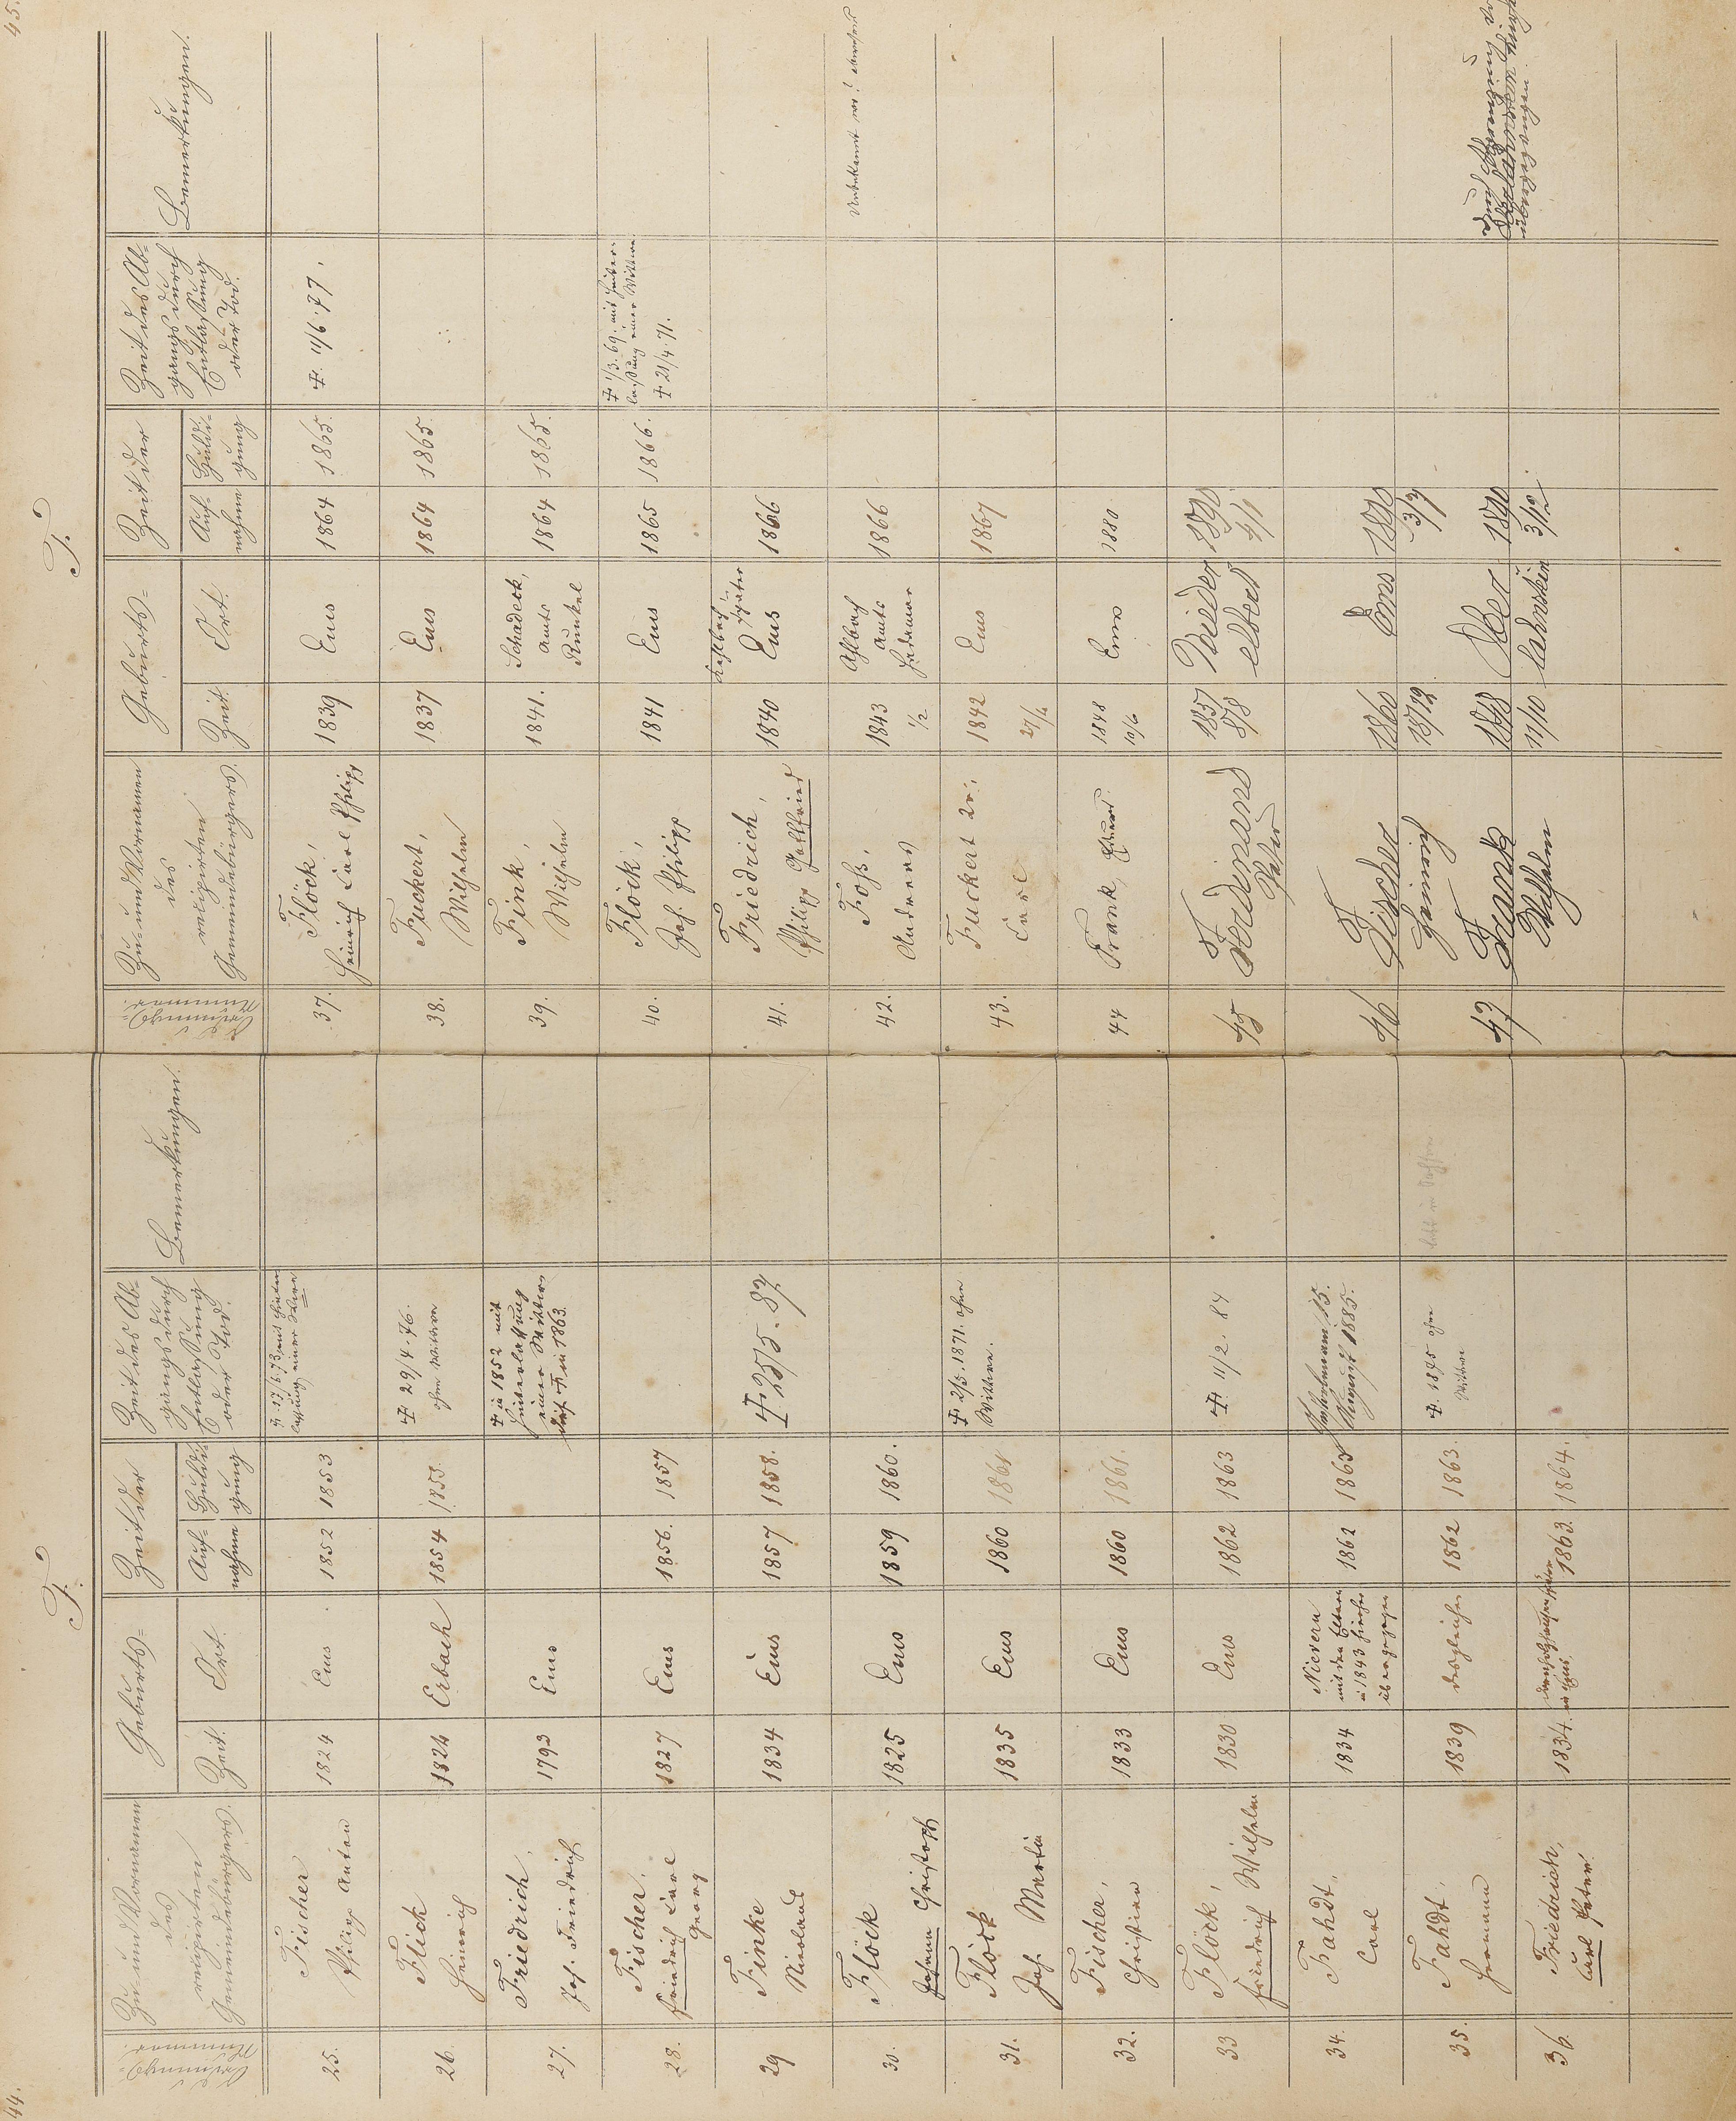 44.
F.
Ordnungs-
Nummer.
Zu- und Vornamen
des
rezipirten
Gemeindebürgers.
Geburts-
Zeit.
Ort.
Zeit der
Auf-
nahme
Huldi-
gung
Zeit des Ab-
gangs durch
Entlassung
oder Tod.
Bemerkungen.
25.
Fischer
Philipp Anton
1824
Ems
1852
1853
einer
26.
Flick
Heinrich
1824
Erbach
1854
1855.
† 29/4. 76.
ohne Wittwe
27.
Friedrich,
Joh. Friedrich
1793
Ems
† in 1852 mit
Hinterlassung
einer Wittwe
† in 1863.
28.
Fischer,
Friedrich Carl
Georg
1827
Ems
1856.
1857
29
Finke
Nicolaus
1834
Ems
1857
1858.
† 25/5. 87.
30.
Flöck
Johann Christoph
1825
Ems
1859
1860.
31.
Flöck
Joh. Martin
1835
Ems
1860
1861
† 2/5. 1871. ohne
Wittwe.
32.
Fischer,
Christian
1833
Ems
1860
1861.
33
Flöck,
Friedrich Wilhelm
1830
Ems
1862
1863
† 11/2. 84
34.
Fahdt,
Carl
1834
Nievern
mit den Eltern
in 1843 hierher
1862
1863
15.
August 1885.
35.
Fahdt,
Hermann
1839
desgleichen
1862
1863.
† 1895 ohne
Wittwe
36.
Friedrich,
Carl Peter
1834.
in Ems.
1863.
1864.
45.
F.
Ordnungs-
Nummer.
Zu- und Vornamen
des
rezipirten
Gemeindebürgers.
Geburts-
Zeit.
Ort.
Zeit der
Auf-
nahme
Huldi-
gung
Zeit des Ab-
gangs durch
Entlassung
oder Tod.
Bemerkungen.
37.
Flöck,
Heinrich Carl Philipp
1839
Ems
1864
1865.
† 11/6. 77.
38.
Fuckert,
Wilhelm
1837
Ems
1864
1865.
39.
Fink,
Wilhelm
1841.
Schadeck,
Amts
Runkel
1864
1865.
40.
Flöck,
Joh. Philipp
1841
Ems
1865
1866.
† 1/3. 69. mit Hinter-
lassung einer Wittwe
† 21/4. 71.
41.
Friedrich,
Philipp Gottfried
1840
später
Ems
1866
42.
Foß,
Andreas
1843
1/2
Ahlbach
Amts
Hadamar
1866
Unbekannt wo!
43.
Fuckert 2r.
Carl
1842
27/6
Ems
1867
44
Frank,
1848
10/6
Ems
1880
45
Ferdinand
Peter
1857
8/8
Nieder
elbert
1890
4/1
46
Fischer
Heinrich
1860
18/12
Ems
1890
3/9
47
Frank
Wilhelm
1848
11/10
Ober
lahnstein
1890
3/12.
übergegangen.